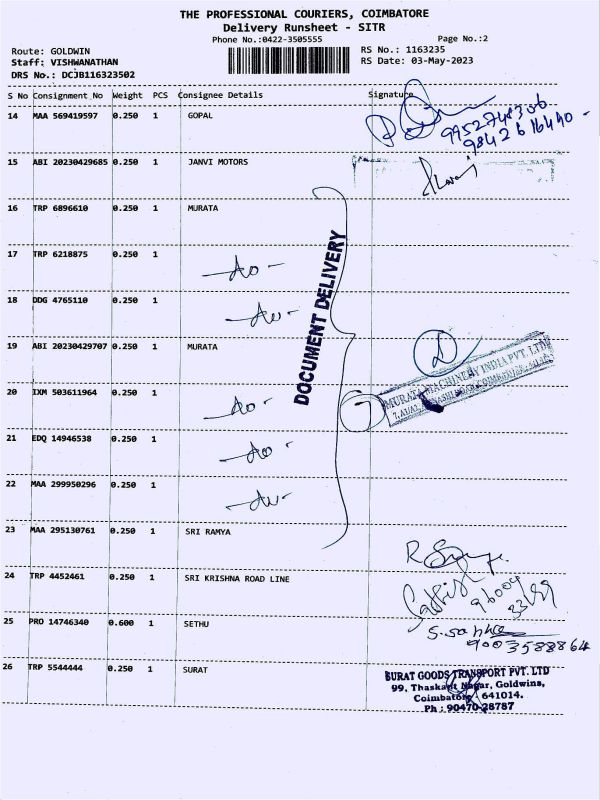 THE PROFESSIONAL COURIERS, COIMBATORE
Delivery Runsheet - SITR
Phone No.:0422-3505555 Page No.:2
Route: GOLDWIN RS No.: 1163235
Staff: VISHWANATHAN RS Date: 03-May-2023
DRS No.: DCJB116323502
S No Consignment No Weight PCS Consignee Details Signature
14 MAA 569419597 0.250 1 GOPAL
9952748306
9842616440 -
15 ABI 20230429685 0.250 1 JANVI MOTORS
16 TRP 6896610 0.250 1 MURATA
17 TRP 6218875 0.250 1 - do -
18 DDG 4765110 0.250 1 - do -
DOCUMENT DELIVERY
19 ABI 20230429707 0.250 1 MURATA
MURATA MACHINERY INDIA PVT. LTD
20 IXM 503611964 0.250 1 - do - 7
21 EDQ 14946538 0.250 1 - do -
22 MAA 299950296 0.250 1 - do -
23 MAA 295130761 0.250 1 SRI RAMYA
24 TRP 4452461 0.250 1 SRI KRISHNA ROAD LINE
25 PRO 14746340 0.600 1 SETHU
9003588864
26 TRP 5544444 0.250 1 SURAT
SURAT GOODS TRANSPORT PVT. LTD
99, Thaskant Nagar, Goldwins,
Coimbatore 641014.
Ph : 90470-28787